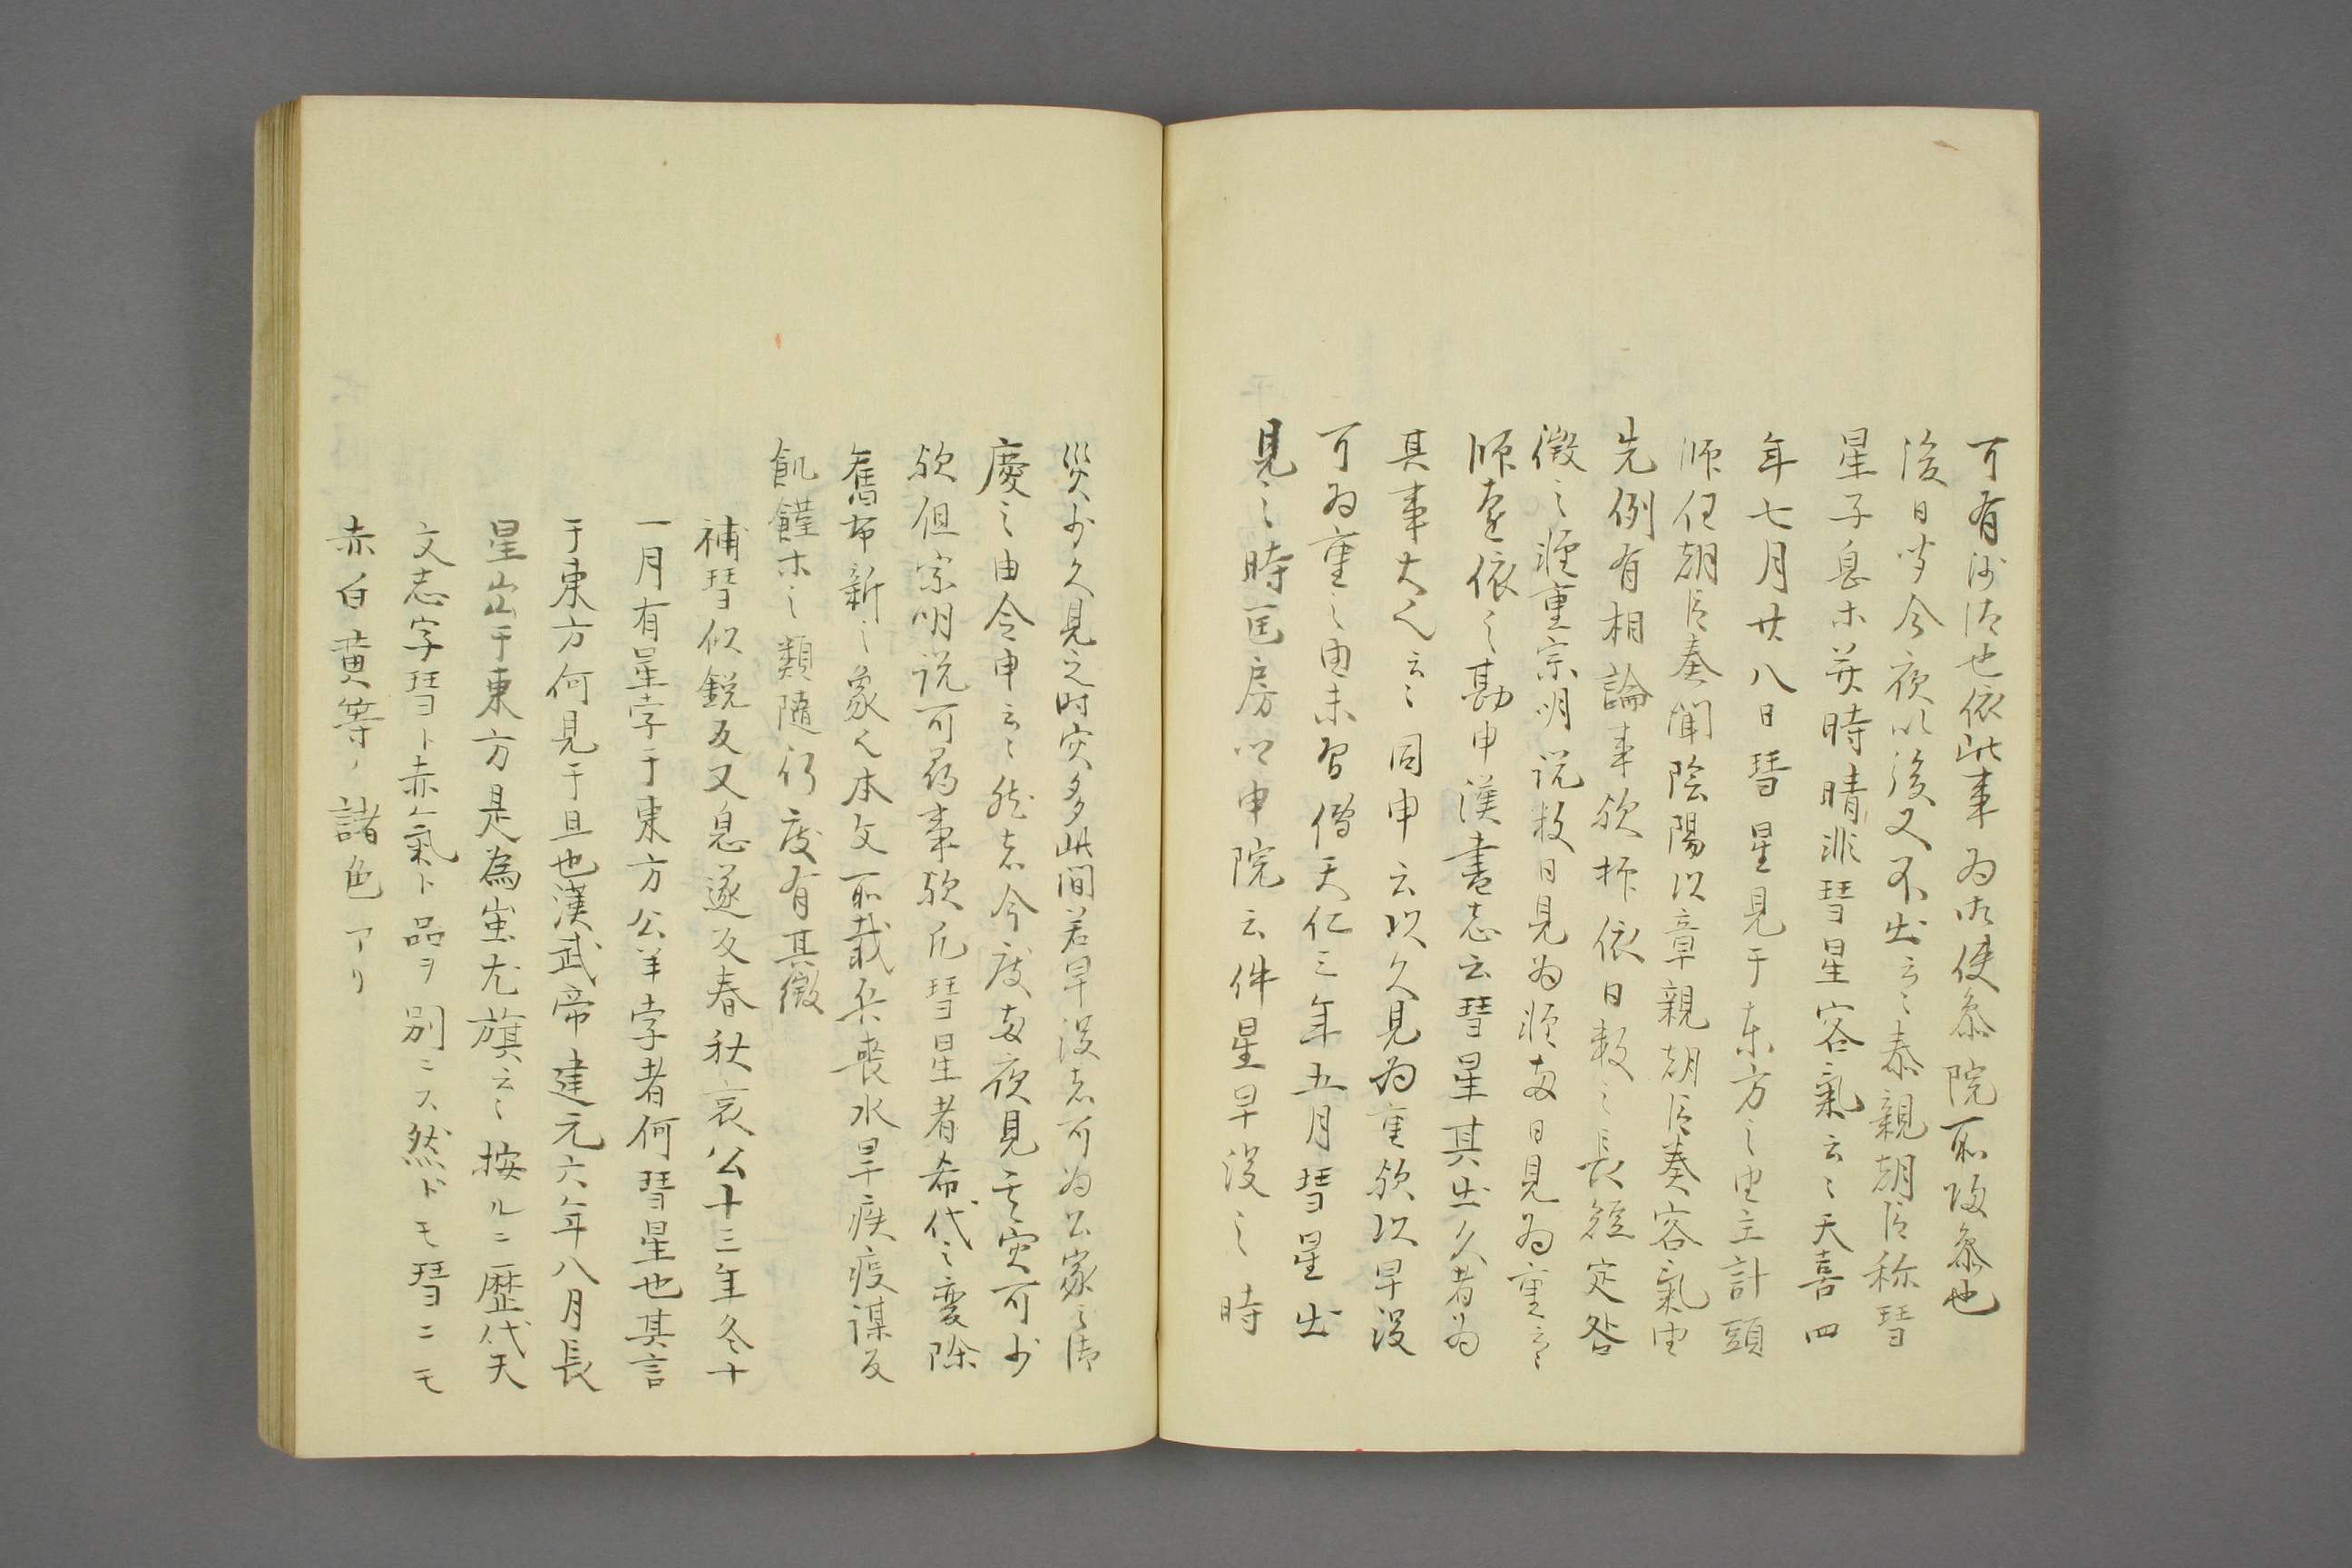 可有沙汰也依此事為御使参院所改参也
後日或今夜以後又不出云々泰親朝臣称彗
星子息等并時晴非彗星客氣云々天喜四
年七月廿八日彗星見于東方之由主計頭
師任朝臣奏聞陰陽以章親朝臣奏客氣由
先例有相論事欤抑依日数之長短定咎
徴之軽重宗明説数日見為軽両日見為重云々
師遠依之勘申漢書志云彗星其出久者為
其事大又云々同申云以久見為重欤以早没
可為重之由未習傳天仁三年五月彗星出
見之時匡房卿申院云件星早没之時
災少久見之時災多此間若早没者可為公家之御
慶之由令申云々然者今度両夜見其災可少
欤但宗明説可為事欤凡彗星者希代之変除
舊布新之象又本文所載兵喪水旱疾疫謀反
飢饉等之類随行度有其徴
補彗似鋭反又息遂反春秋哀公十三年冬十
一月有星孛于東方公羊孛者何彗星也其言
于東方何見于旦也漢武帝建元六年八月長
星出于東方是為蚩尤旗云々按ルニ歴代天
文志字彗ト赤氣ト品ヲ別ニス然ドモ彗ニモ
赤白黄等ノ諸色アリ